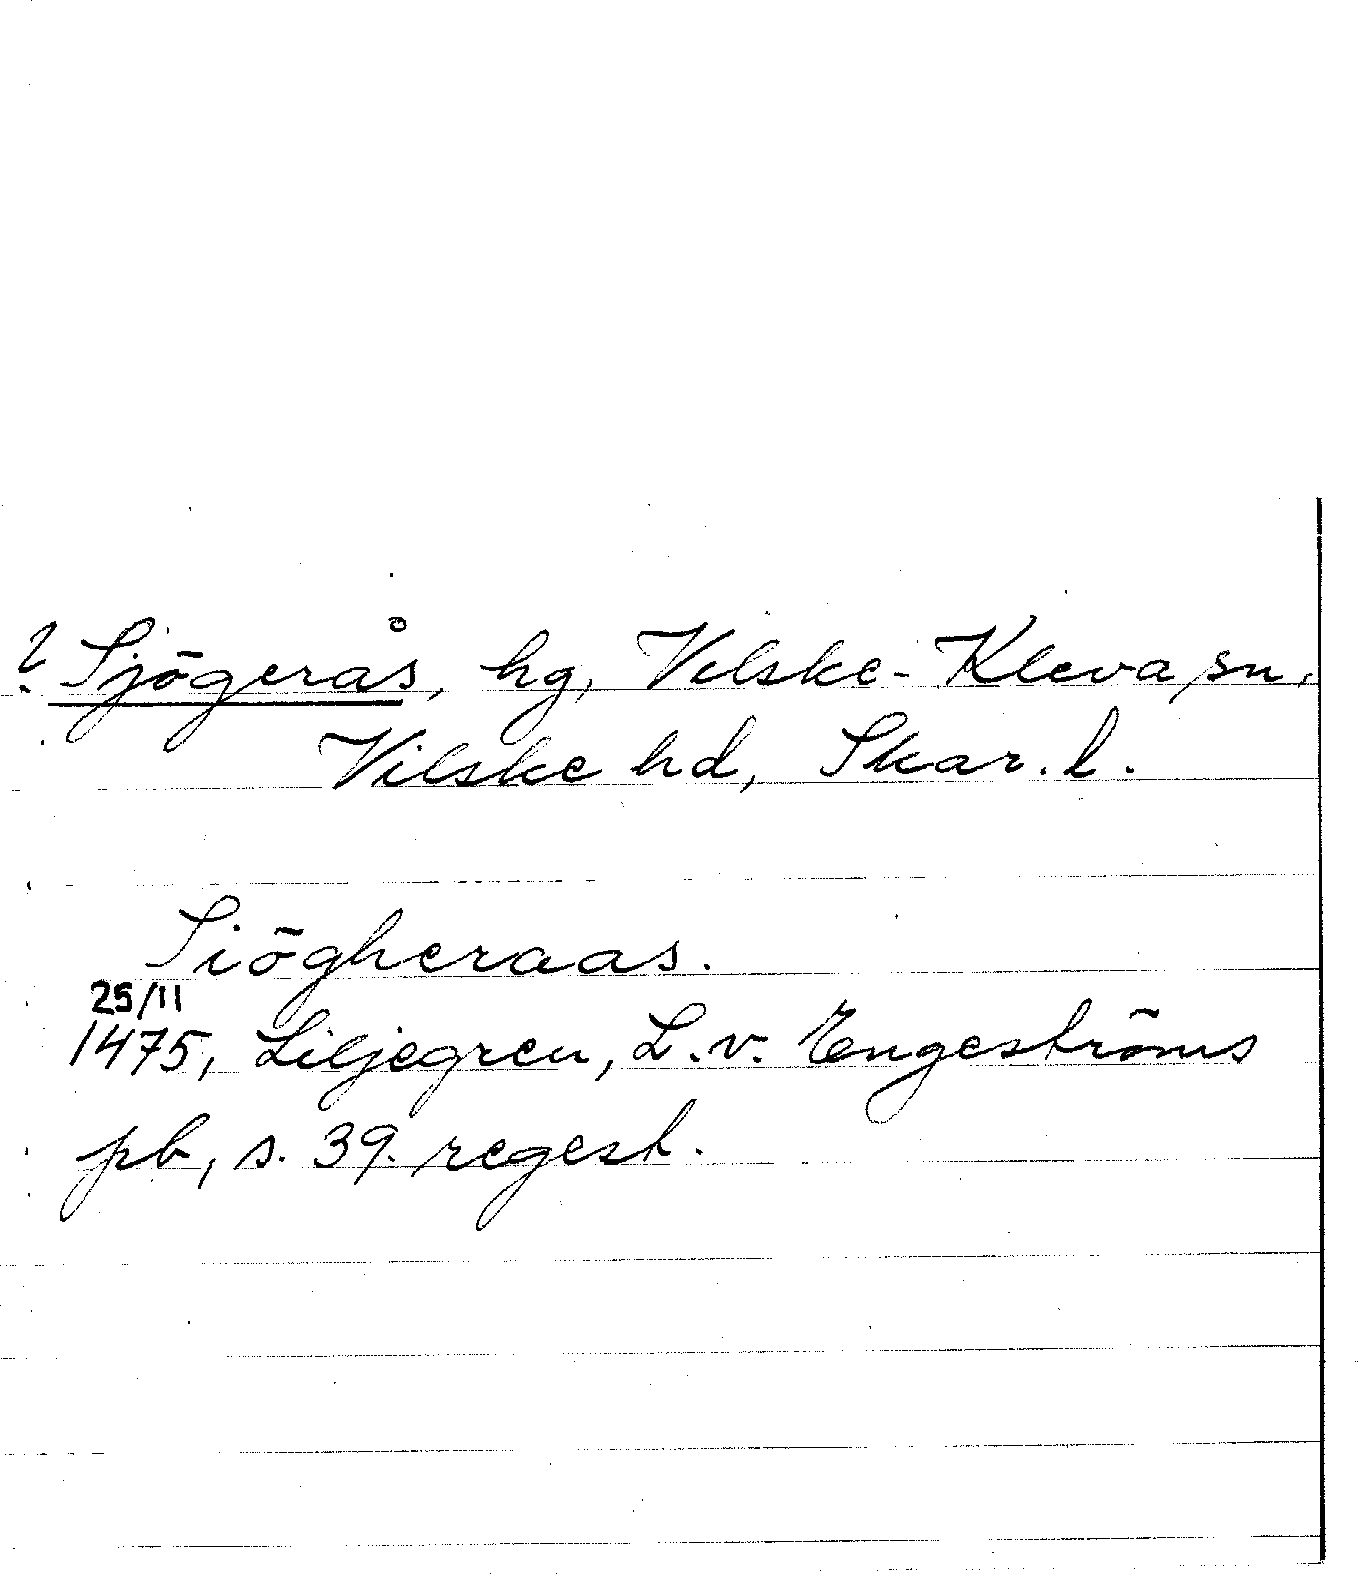 ? Sjögerås, hg, Vilske-Kleva sn,
Vilske hd, Skar. l.
Siögheraas.
25/11
1475, Liljegren, L.v. Engeströms
pb, s. 39. regest.